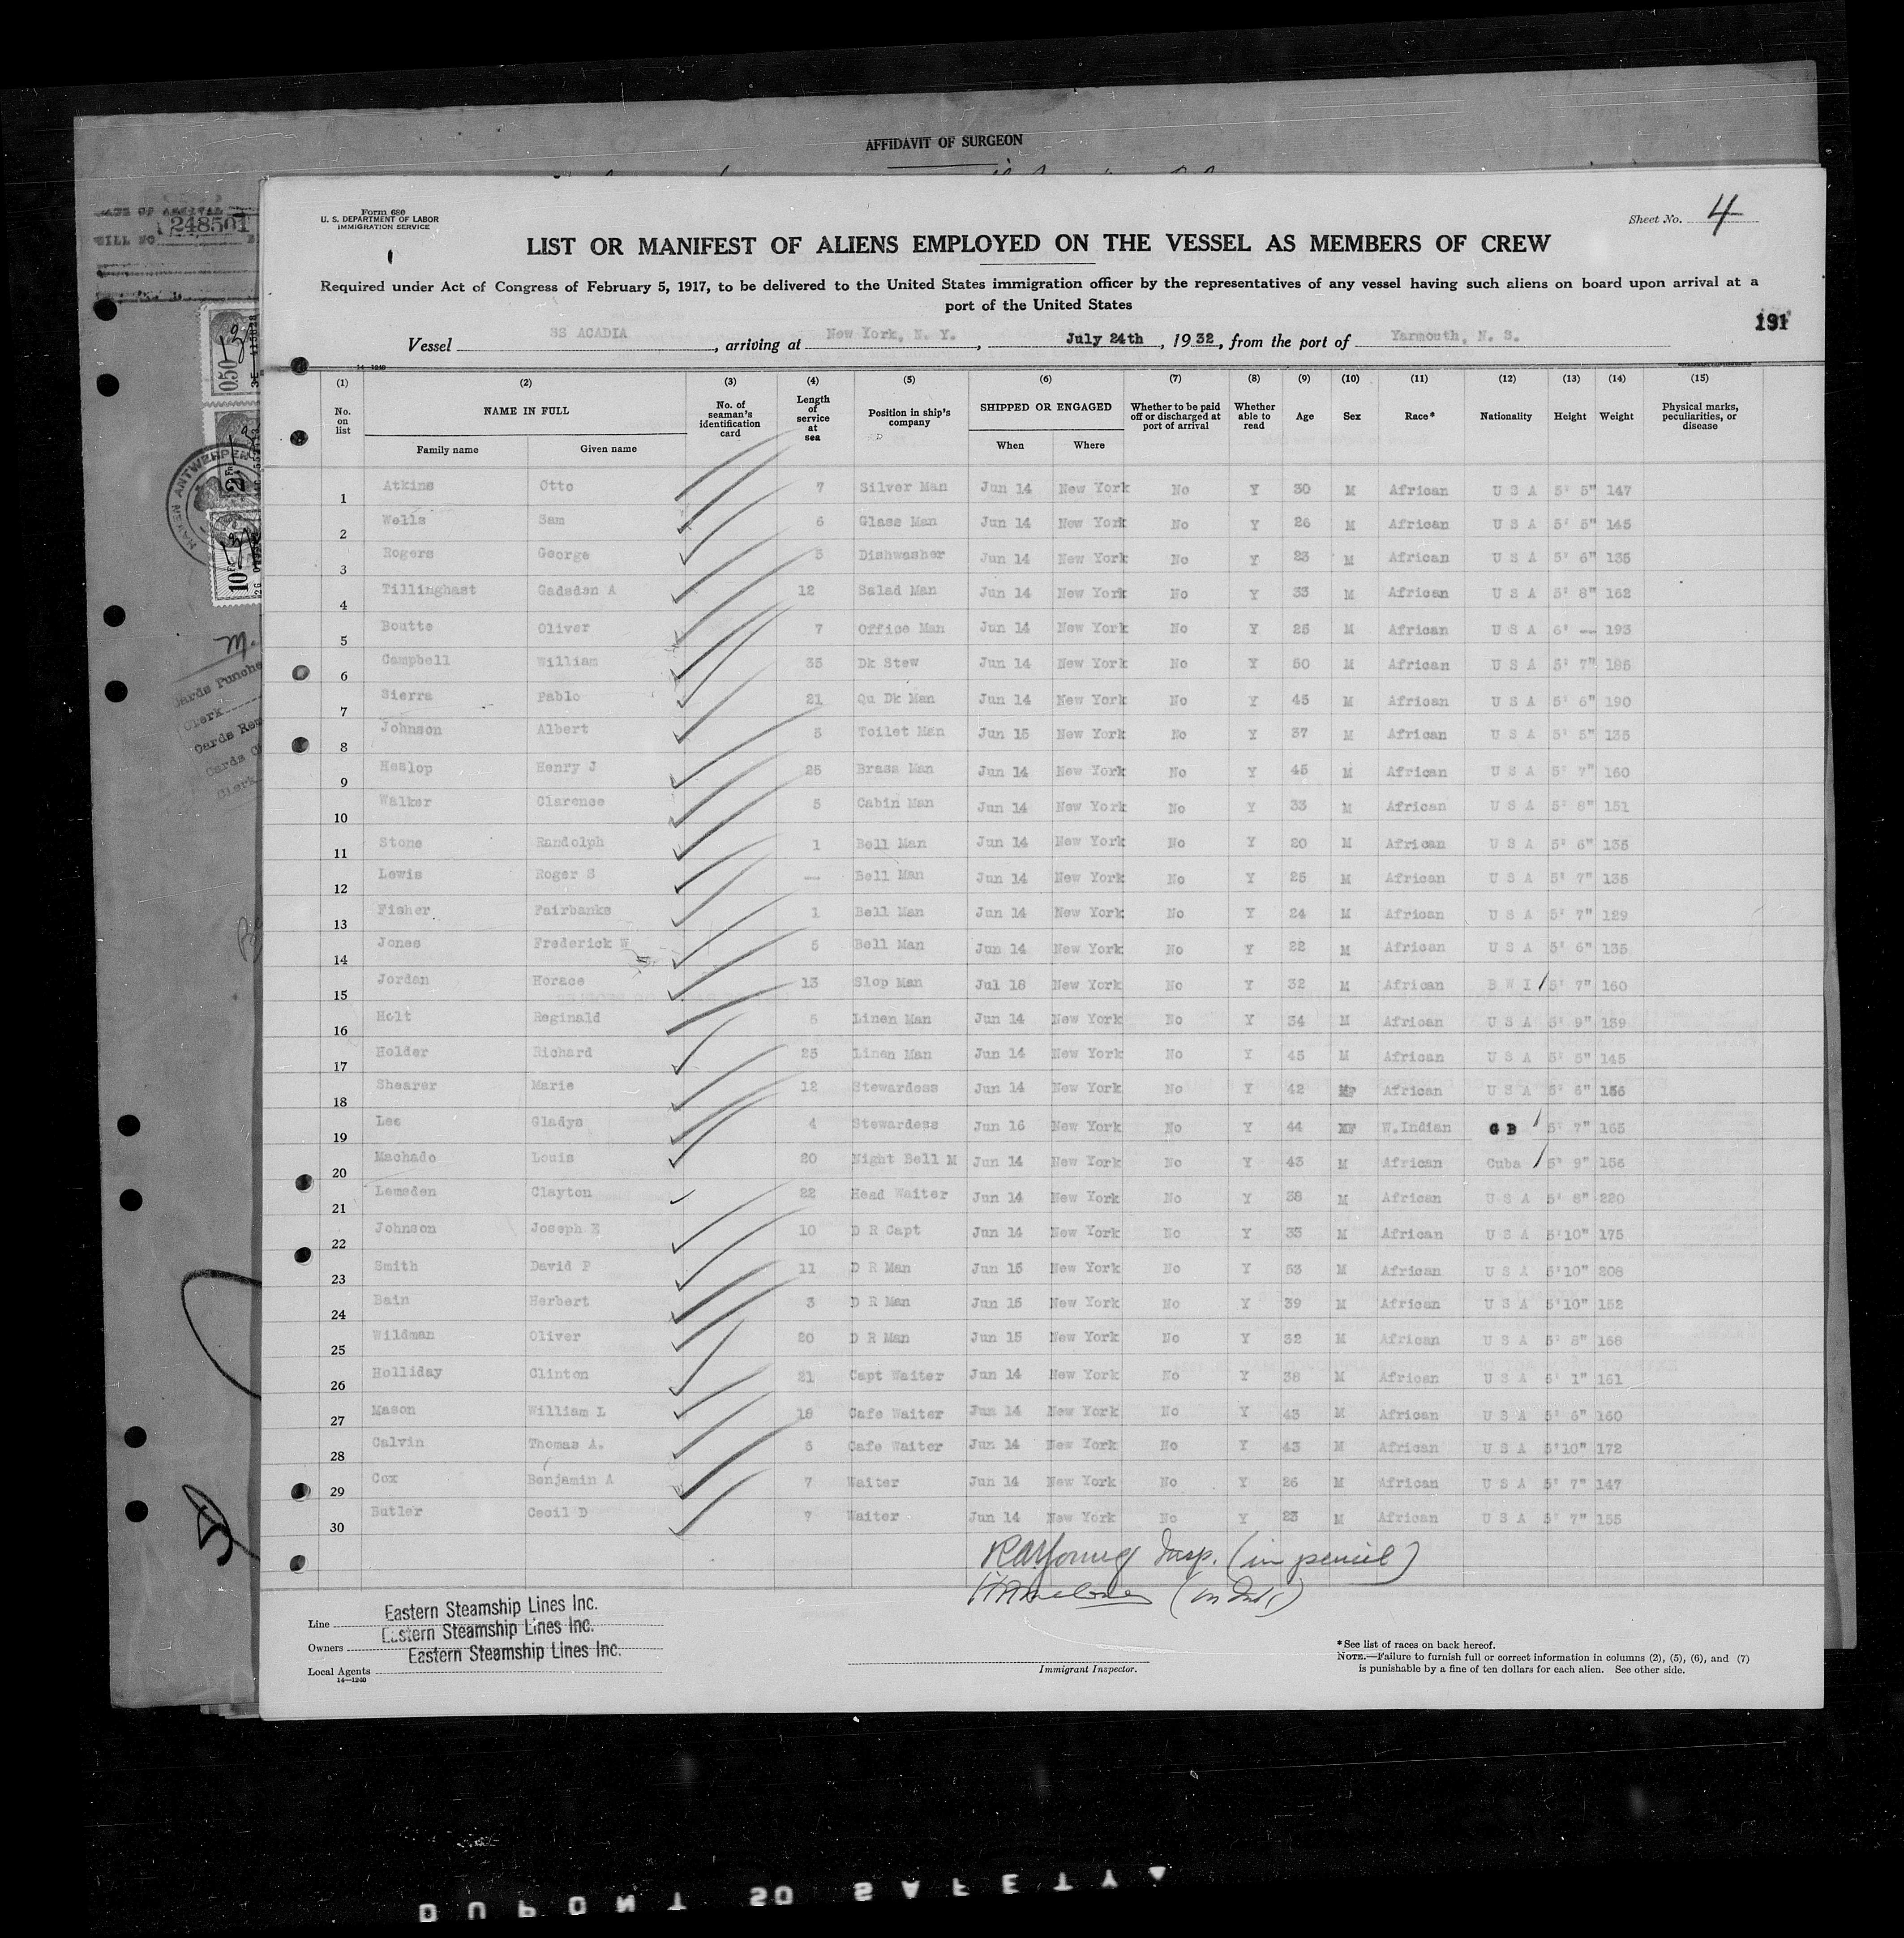 AFFIDAVIT OF SURGEON
DATE OF ARRIVAL
248501
BILL NO.
Form 680
U. S. DEPARTMENT OF LABOR
IMMIGRATION SERVICE
Sheet No. 4
LIST OR MANIFEST OF ALIENS EMPLOYED ON THE VESSEL AS MEMBERS OF CREW
Required under Act of Congress of February 5, 1917, to be delivered to the United States immigration officer by the representatives of any vessel having such aliens on board upon arrival at a
port of the United States
191
Vessel SS ACADIA, arriving at New York, N. Y., July 24th, 1932, from the port of Yarmouth, N. S.
14—1240
(1) (2) (3) (4) (5) (6) (7) (8) (9) (10) (11) (12) (13) (14) (15)
No. on list NAME IN FULL Family name Given name No. of seaman's identification card Length of service at sea Position in ship's company SHIPPED OR ENGAGED When Where Whether to be paid off or discharged at port of arrival Whether able to read Age Sex Race* Nationality Height Weight Physical marks, peculiarities, or disease
1 Atkins Otto 7 Silver Man Jun 14 New York No Y 30 M African U S A 5' 5" 147
2 Wells Sam 6 Glass Man Jun 14 New York No Y 26 M African U S A 5' 5" 145
3 Rogers George 5 Dishwasher Jun 14 New York No Y 23 M African U S A 5' 6" 135
4 Tillinghast Gadsden A 12 Salad Man Jun 14 New York No Y 33 M African U S A 5' 8" 162
5 Boutte Oliver 7 Office Man Jun 14 New York No Y 25 M African U S A 6' — 193
6 Campbell William 35 Dk Stew Jun 14 New York No Y 50 M African U S A 5' 7" 185
7 Sierra Pablo 21 Qu Dk Man Jun 14 New York No Y 45 M African U S A 5' 6" 190
8 Johnson Albert 5 Toilet Man Jun 15 New York No Y 37 M African U S A 5' 5" 135
9 Heslop Henry J 25 Brass Man Jun 14 New York No Y 45 M African U S A 5' 7" 160
10 Walker Clarence 5 Cabin Man Jun 14 New York No Y 33 M African U S A 5' 8" 151
11 Stone Randolph 1 Bell Man Jun 14 New York No Y 20 M African U S A 5' 6" 135
12 Lewis Roger S — Bell Man Jun 14 New York No Y 25 M African U S A 5' 7" 135
13 Fisher Fairbanks 1 Bell Man Jun 14 New York No Y 24 M African U S A 5' 7" 129
14 Jones Frederick W 5 Bell Man Jun 14 New York No Y 22 M African U S A 5' 6" 135
15 Jordan Horace 13 Slop Man Jul 18 New York No Y 32 M African B W I 5' 7" 160
16 Holt Reginald 5 Linen Man Jun 14 New York No Y 34 M African U S A 5' 9" 139
17 Holder Richard 25 Linen Man Jun 14 New York No Y 45 M African U S A 5' 5" 145
18 Shearer Marie 12 Stewardess Jun 14 New York No Y 42 F African U S A 5' 6" 156
19 Lee Gladys 4 Stewardess Jun 16 New York No Y 44 F W.Indian G B 5' 7" 165
20 Machado Louis 20 Night Bell M Jun 14 New York No Y 43 M African Cuba 5' 9" 156
21 Lemsden Clayton 22 Head Waiter Jun 14 New York No Y 38 M African U S A 5' 8" 220
22 Johnson Joseph E 10 D R Capt Jun 14 New York No Y 33 M African U S A 5'10" 175
23 Smith David P 11 D R Man Jun 15 New York No Y 53 M African U S A 5'10" 208
24 Bain Herbert 3 D R Man Jun 15 New York No Y 39 M African U S A 5'10" 152
25 Wildman Oliver 20 D R Man Jun 15 New York No Y 32 M African U S A 5' 8" 168
26 Holliday Clinton 21 Capt Waiter Jun 14 New York No Y 38 M African U S A 5' 1" 151
27 Mason William L 18 Cafe Waiter Jun 14 New York No Y 43 M African U S A 5' 6" 160
28 Calvin Thomas A. 6 Cafe Waiter Jun 14 New York No Y 43 M African U S A 5'10" 172
29 Cox Benjamin A 7 Waiter Jun 14 New York No Y 26 M African U S A 5' 7" 147
30 Butler Cecil D 7 Waiter Jun 14 New York No Y 23 M African U S A 5' 7" 155
RA Young Insp. (in pencil)
(in Ink)
Line Eastern Steamship Lines Inc.
Owners Eastern Steamship Lines Inc.
Local Agents Eastern Steamship Lines Inc.
14—1240
Immigrant Inspector.
*See list of races on back hereof.
NOTE.—Failure to furnish full or correct information in columns (2), (5), (6), and (7)
is punishable by a fine of ten dollars for each alien. See other side.
DUPONT 50 SAFETY